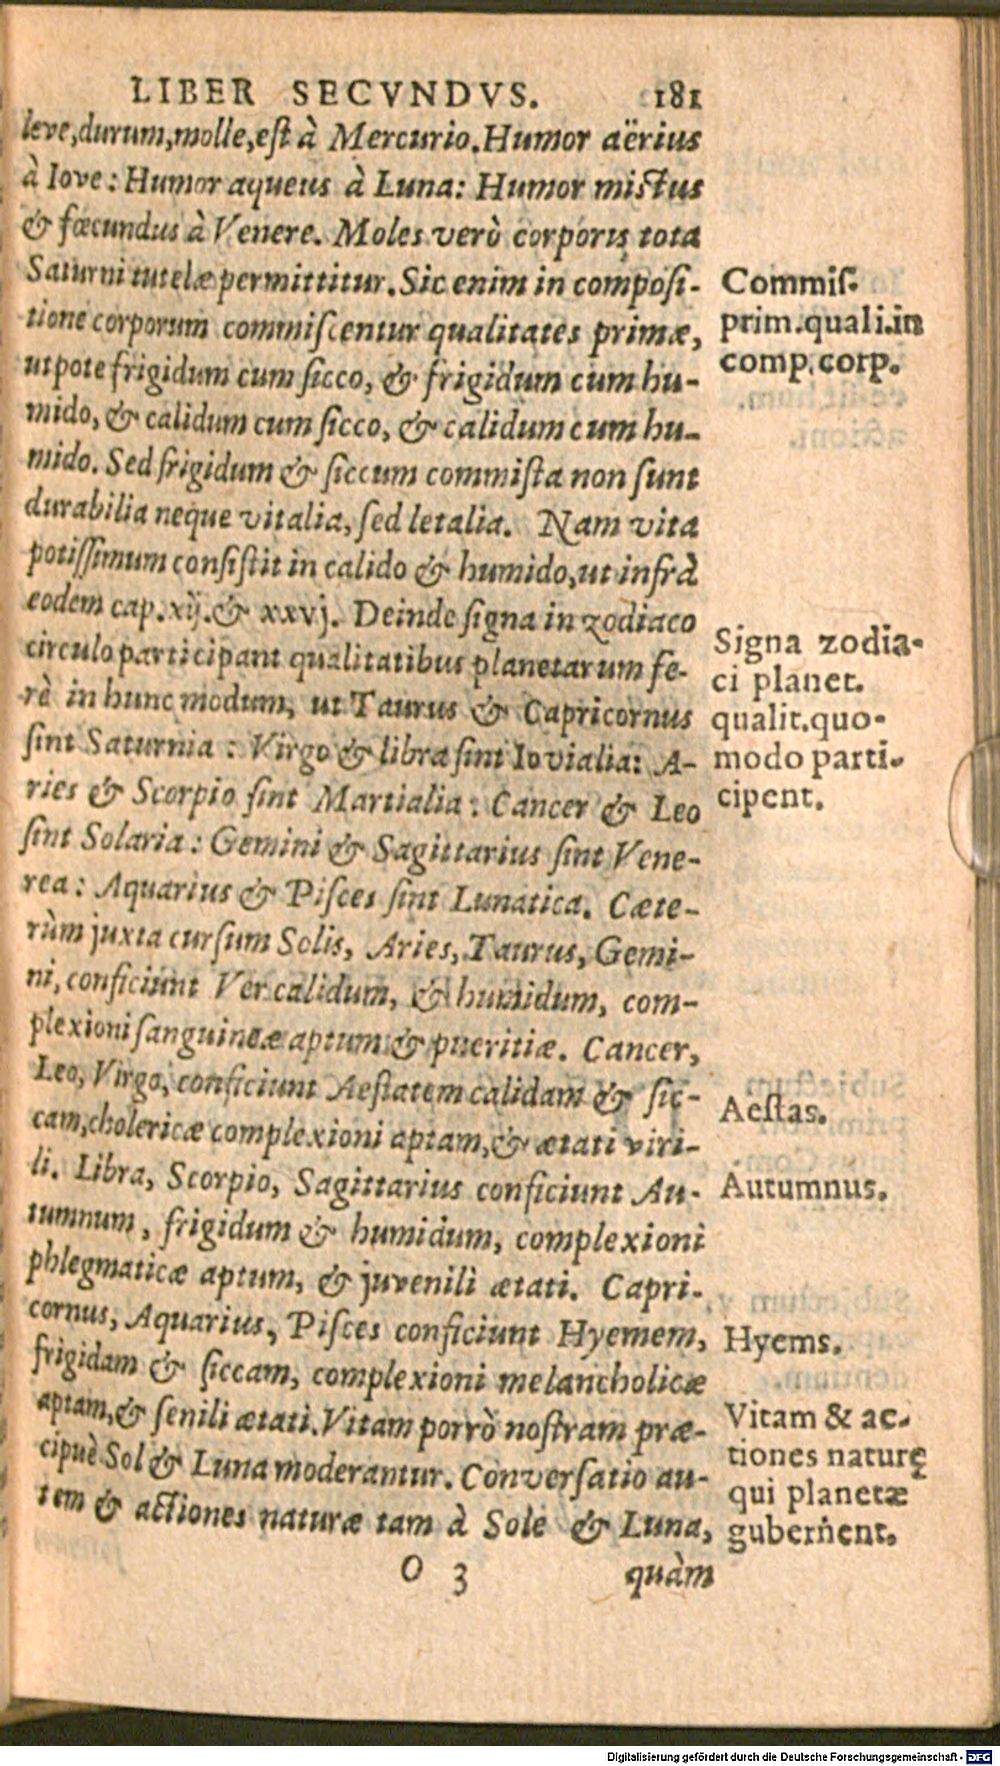 LIBER SECVNDVS. 181
leve, durum, molle, est à Mercurio. Humor aërius
à Iove: Humor aqueus à Luna: Humor mistus
& fœcundus à Venere. Moles verò corporis tota
Saturni tutelæ permittitur. Sic enim in composi-
tione corporum commiscentur qualitates primæ,
utpote frigidum cum sicco, & frigidum cum hu-
mido, & calidum cum sicco, & calidum cum hu-
mido. Sed frigidum & siccum commista non sunt
durabilia neque vitalia, sed letalia. Nam vita
potissimum consistit in calido & humido, ut infrà
eodem cap. xij. & xxvj. Deinde signa in zodiaco
circulo participant qualitatibus planetarum fe-
rè in hunc modum, ut Taurus & Capricornus
sint Saturnia: Virgo & libra sint Iovialia: A-
ries & Scorpio sint Martialia: Cancer & Leo
sint Solaria: Gemini & Sagittarius sint Vene-
rea: Aquarius & Pisces sint Lunatica. Cæte-
rùm juxta cursum Solis, Aries, Taurus, Gemi-
ni, conficiunt Ver calidum, & humidum, com-
plexioni sanguineæ aptum & pueritiæ. Cancer,
Leo, Virgo, conficiunt Aestatem calidam & sic-
cam, cholericæ complexioni aptam, & ætati viri-
li. Libra, Scorpio, Sagittarius conficiunt Au-
tumnum, frigidum & humidum, complexioni
phlegmaticæ aptum, & juvenili ætati. Capri-
cornus, Aquarius, Pisces conficiunt Hyemem,
frigidam & siccam, complexioni melancholicæ
aptam, & senili ætati. Vitam porrò nostram præ-
cipuè Sol & Luna moderantur. Conversatio au-
tem & actiones naturæ tam à Sole & Luna,
O 3 quàm
Commis.
prim. quali. in
comp. corp.
Signa zodia-
ci planet.
qualit. quo-
modo parti-
cipent.
Aestas.
Autumnus.
Hyems.
Vitam & ac-
tiones naturę
qui planetæ
gubernent.
Digitalisierung gefördert durch die Deutsche Forschungsgemeinschaft - DFG